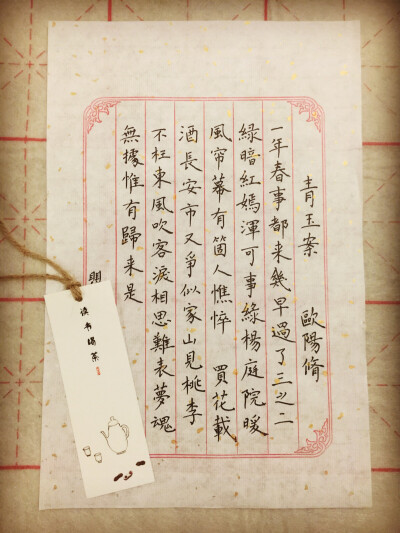 青玉案 歐陽脩
一年春事都来幾早過了三之二
綠暗紅嫣渾可事綠楊庭院暖
風帘幕有箇人憔悴 買花載
酒長安市又爭似家山見桃李
不枉東風吹客淚相思難表夢魂
無據惟有歸来是
读书喝茶